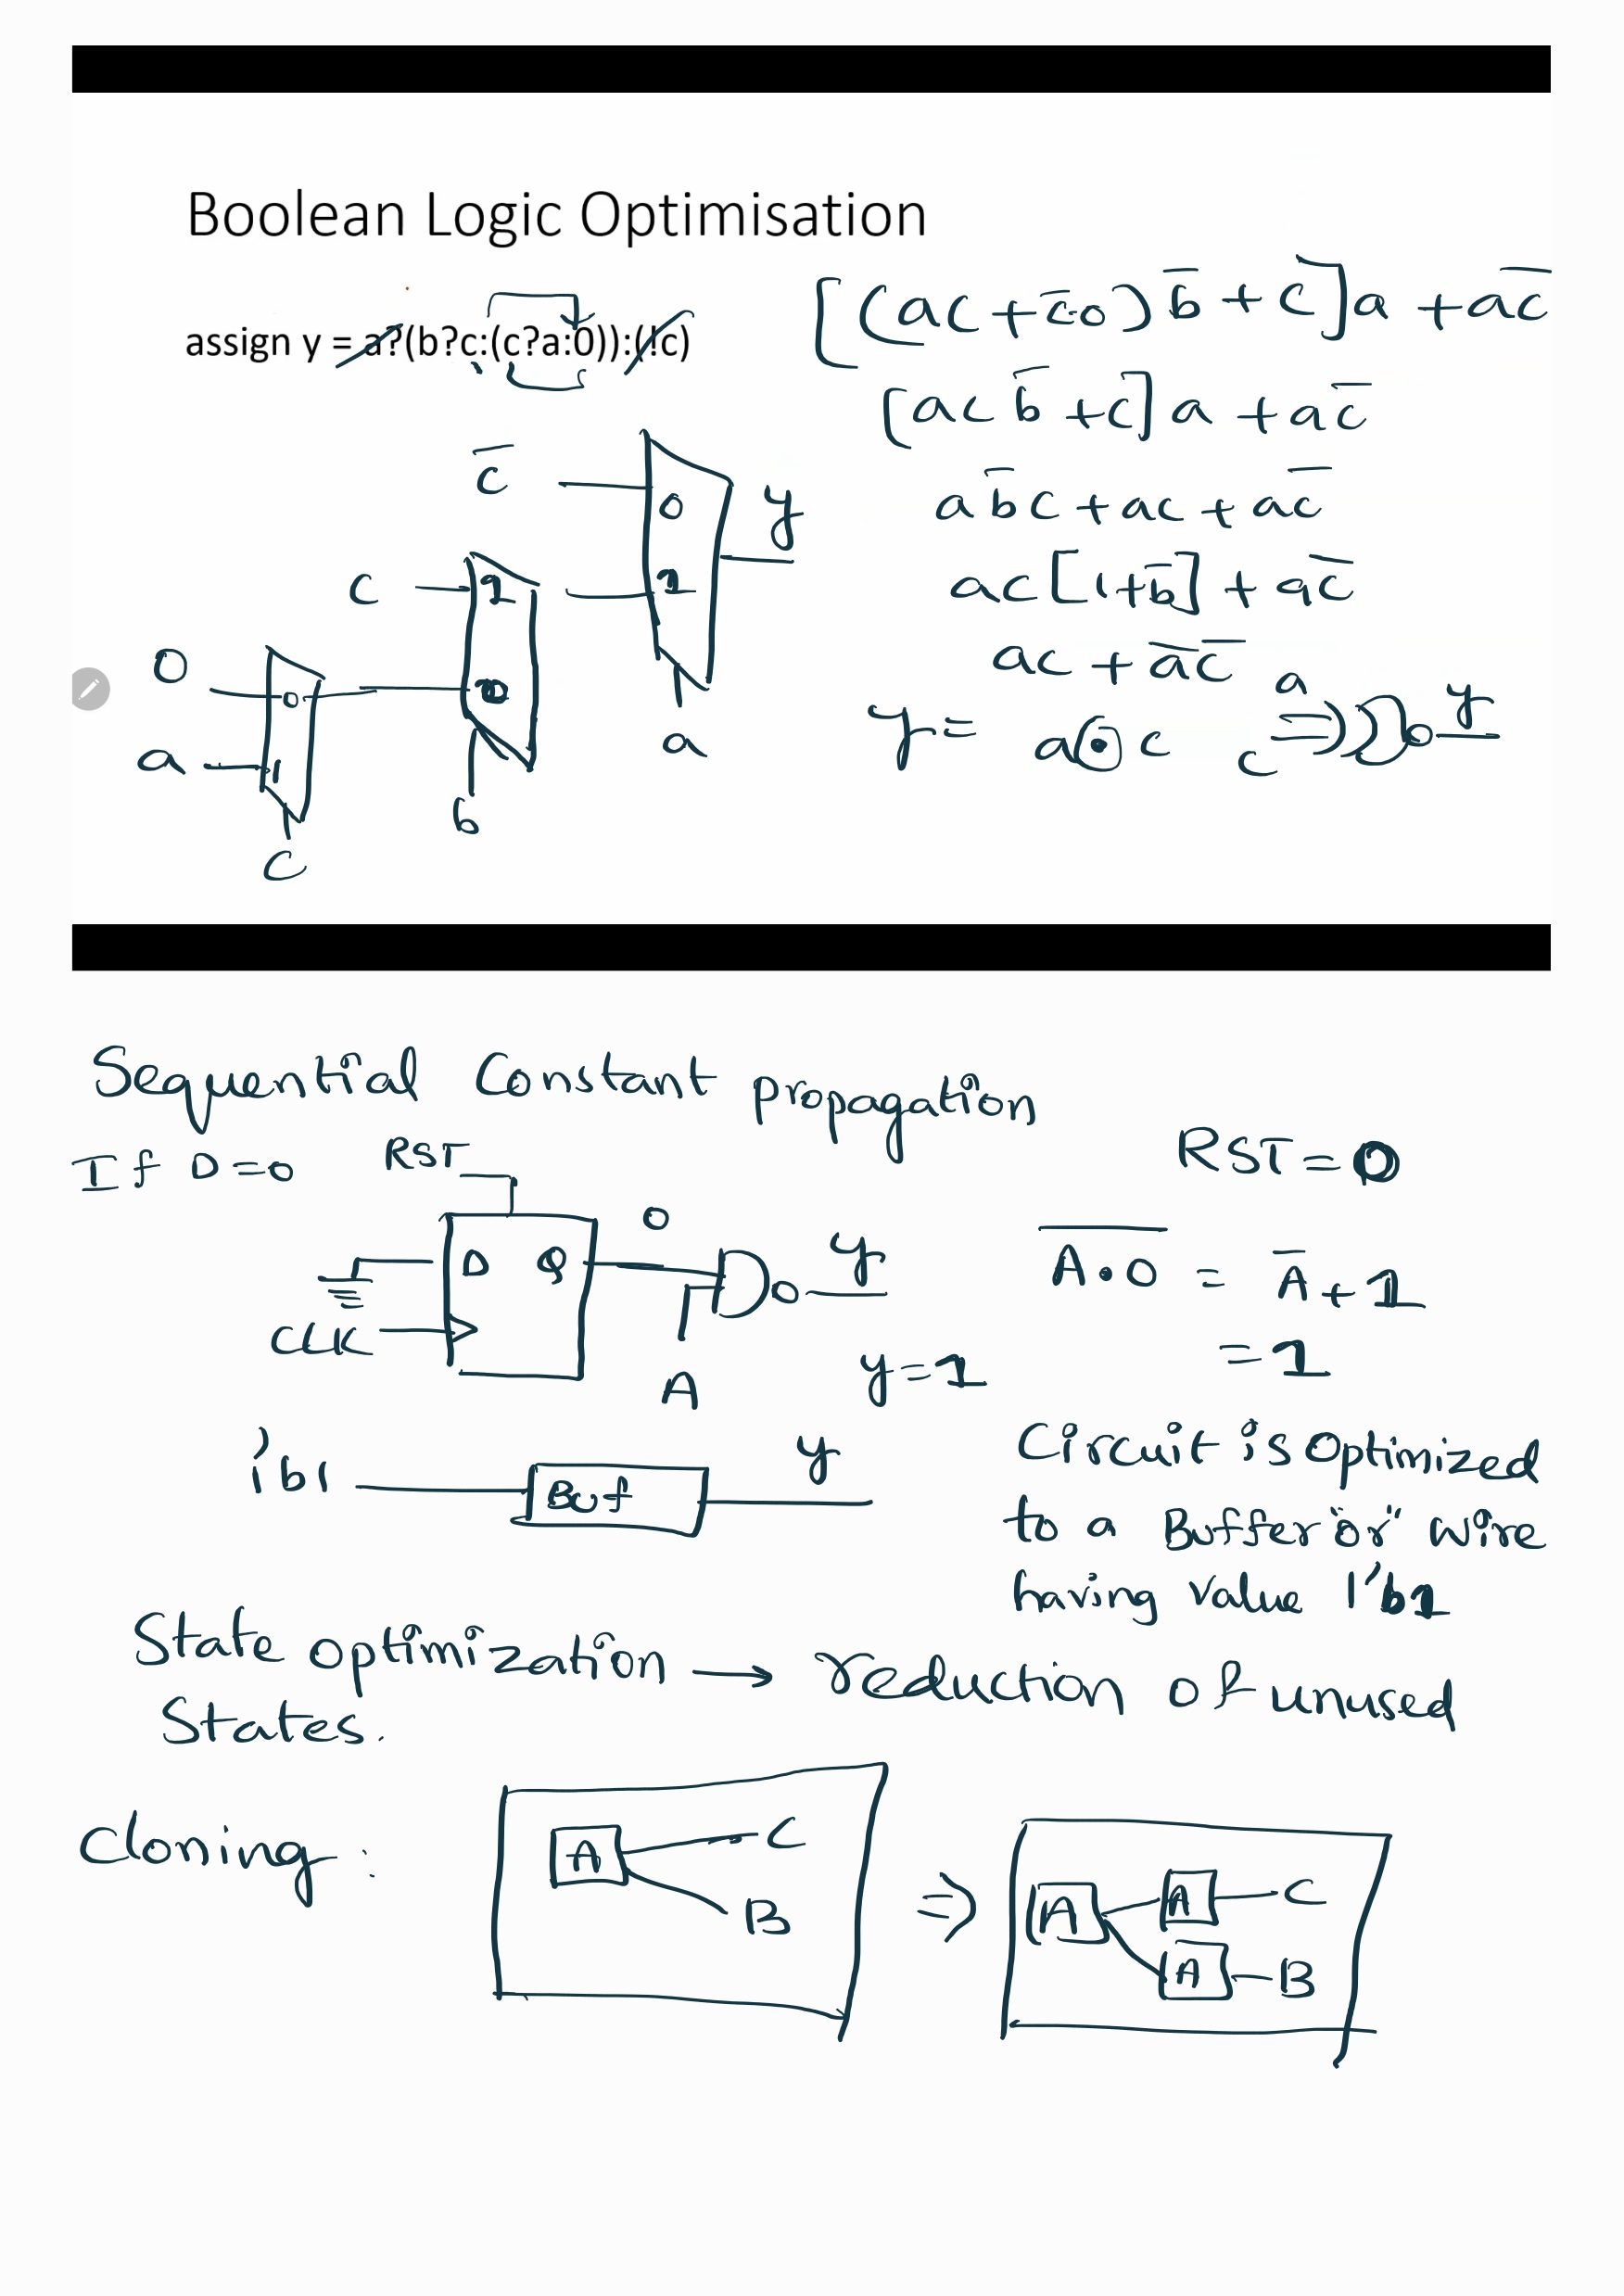 Boolean Logic Optimisation
assign y = a?(b?c:(c?a:0)):(!c)
[(ac+c̅0)b̅+c]a + a̅c̅
[acb̅+c]a + ac̅
ab̅c+ac+ac̅
ac[1+b̅]+ac̅
ac + a̅c̅
y = a⊙c ⇒
a
c
y
c̅
0
1
y
a
c
1
0
b
0
a
0
1
c
Sequential Constant propagation
If D=0 RST RST=0
D Q 0 y
CLK
A y=1
A·0 = A̅+1
=1
1'b1 Buf y
Circuit is Optimized
to a Buffer "or" wire
having value 1'b1
State optimization → reduction of unused
States.
Cloning:
A C
B
⇒
A A C
A B